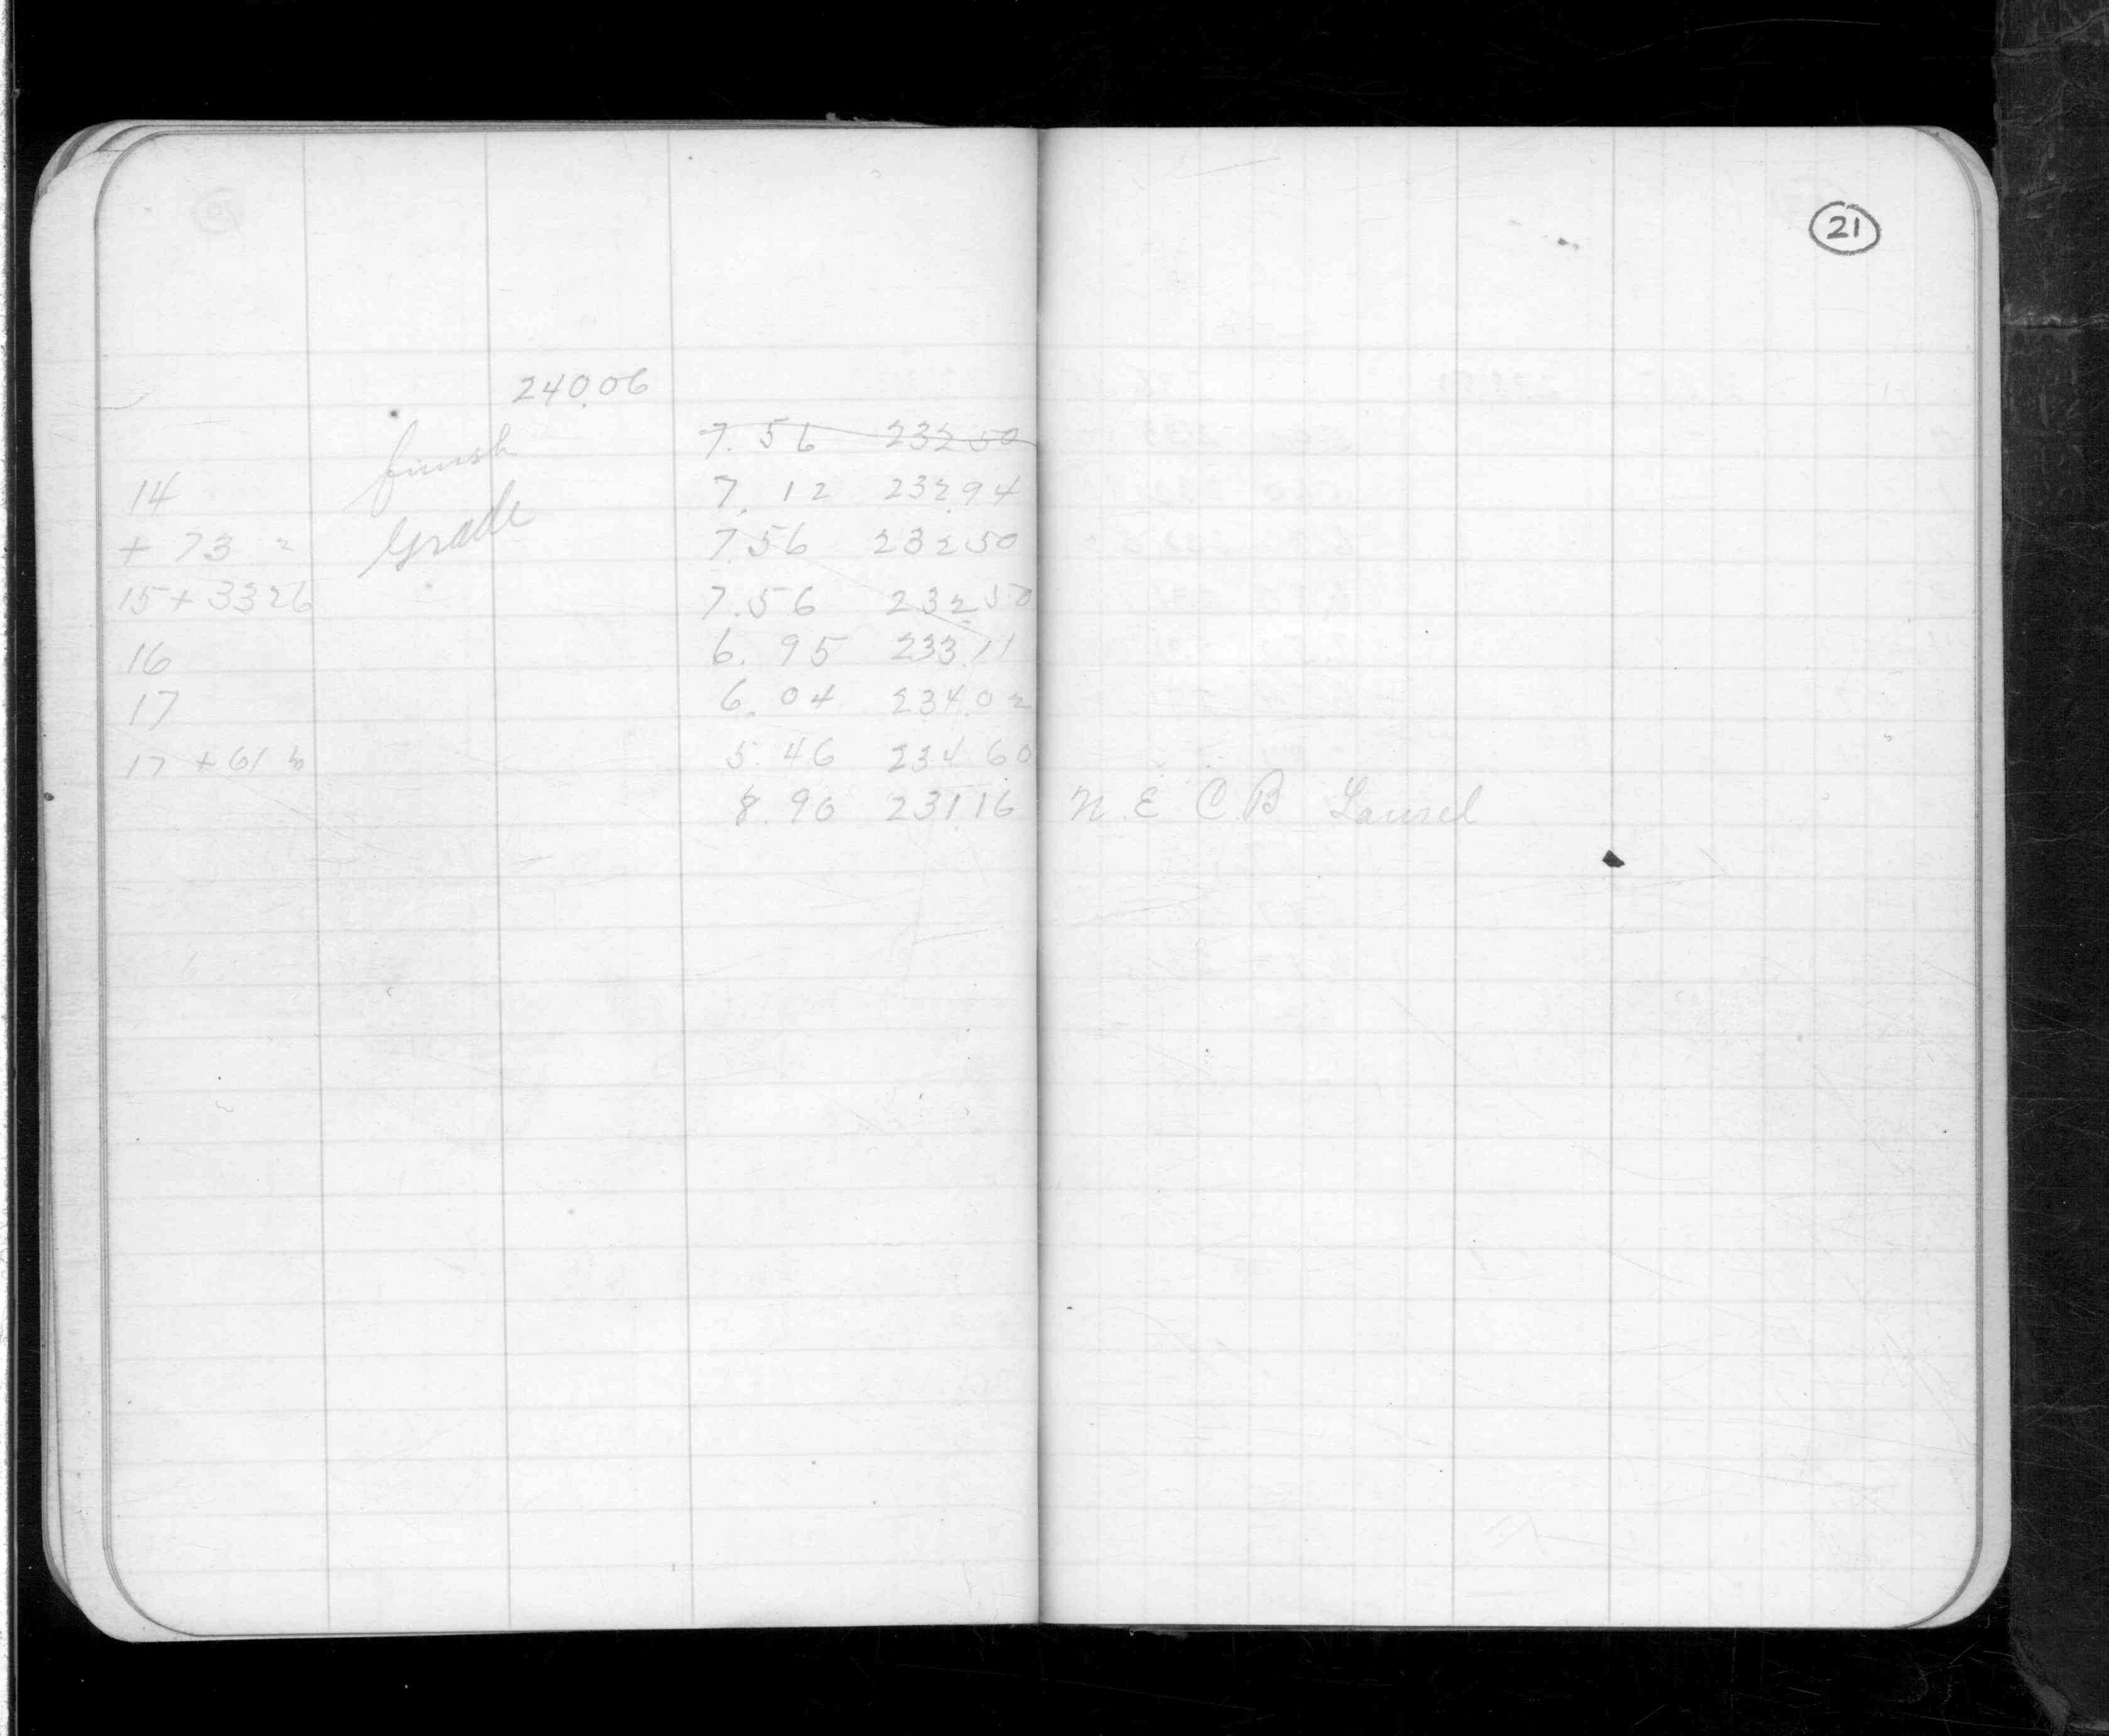 21
240.06
finish 7.56 232 50
14 7.12 232.94
+ 73 2 Grade 7.56 232 50
15 + 33 26 7.56 232 50
16 6.95 233.11
17 6.04 234.02
17 + 61 6 5.46 234 60
8.90 231 16 N.E C.B Laurel